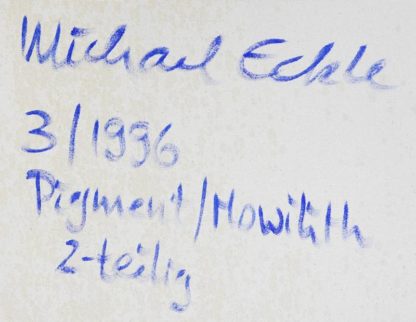 Michael Eckle
3/1996
Pigment/Mowilith
2-teilig